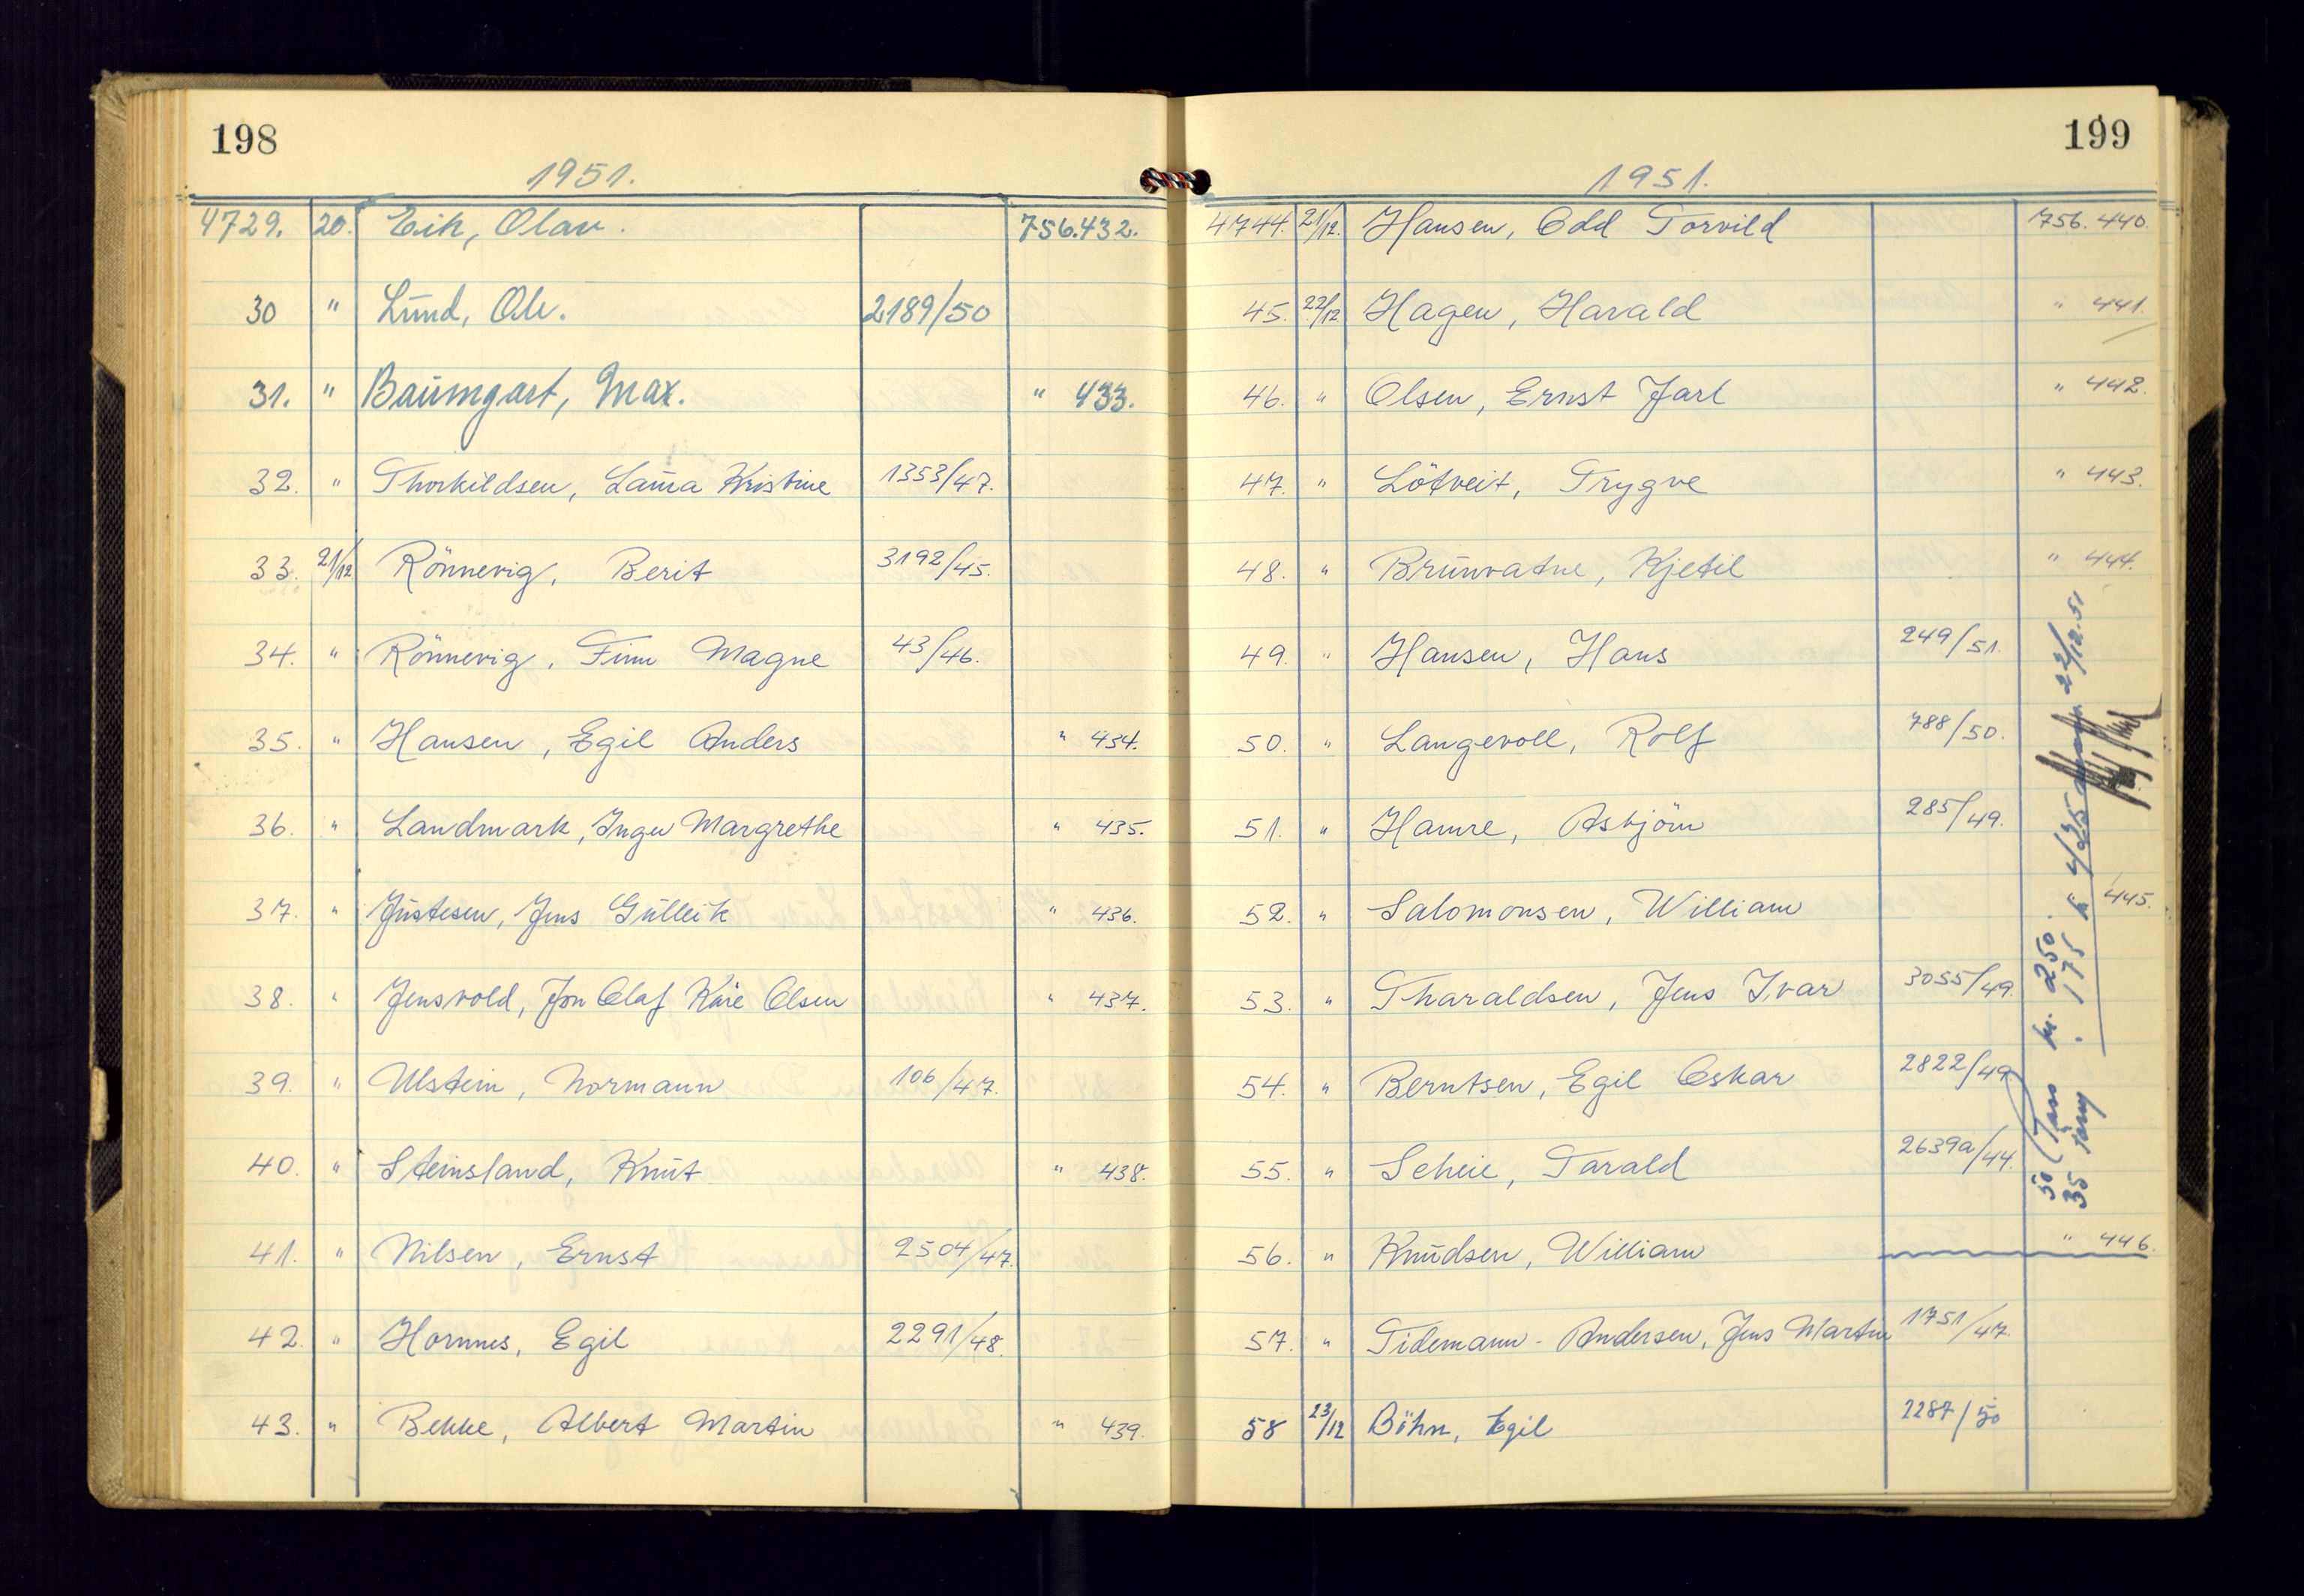 198
1951.
4729. 20. Eik, Olav. 756.432.
30 " Lund, Ole. 2189/50
31. " Baumgart, Max. " 433.
32. " Thorkildsen, Laura Kristine 1353/47.
33. 21/12 Rönnevig, Berit 3192/45.
34. " Rönnevig, Finn Magne 43/46.
35. " Hansen, Egil Anders " 434.
36. " Landmark, Inger Margrethe " 435.
37. " Justesen, Jens Gulleik " 436.
38. " Jensvold, Jon Olaf Kåre Olsen " 437.
39. " Ulstein, Normann 106/47.
40. " Steinsland, Knut " 438.
41. " Nilsen, Ernst 2504/47.
42. " Hornnes, Egil 2291/48.
43. " Bekke, Albert Martin " 439.
199
1951.
4744. 21/12. Hansen, Odd Torvild 756.440.
45. 22/12 Hagen, Harald " 441.
46. " Olsen, Ernst Jarl " 442.
47. " Lötveit, Trygve " 443.
48. " Brunvatne, Kjetil " 444.
49. " Hansen, Hans 249/51.
50. " Langevoll, Rolf 788/50.
51. " Hamre, Asbjörn 285/49.
52. " Salomonsen, William 445.
53. " Tharaldsen, Jens Ivar 3055/49.
54. " Berntsen, Egil Oskar 2822/49.
55. " Scheie, Tarald 2639a/44.
56. " Knudsen, William " 446.
57. " Tidemann-Andersen, Jens Martin 1751/47.
58 23/12 Böhn, Egil 2287/50
50 Pass kr. 250.
35 175 kr 425 22/12.51